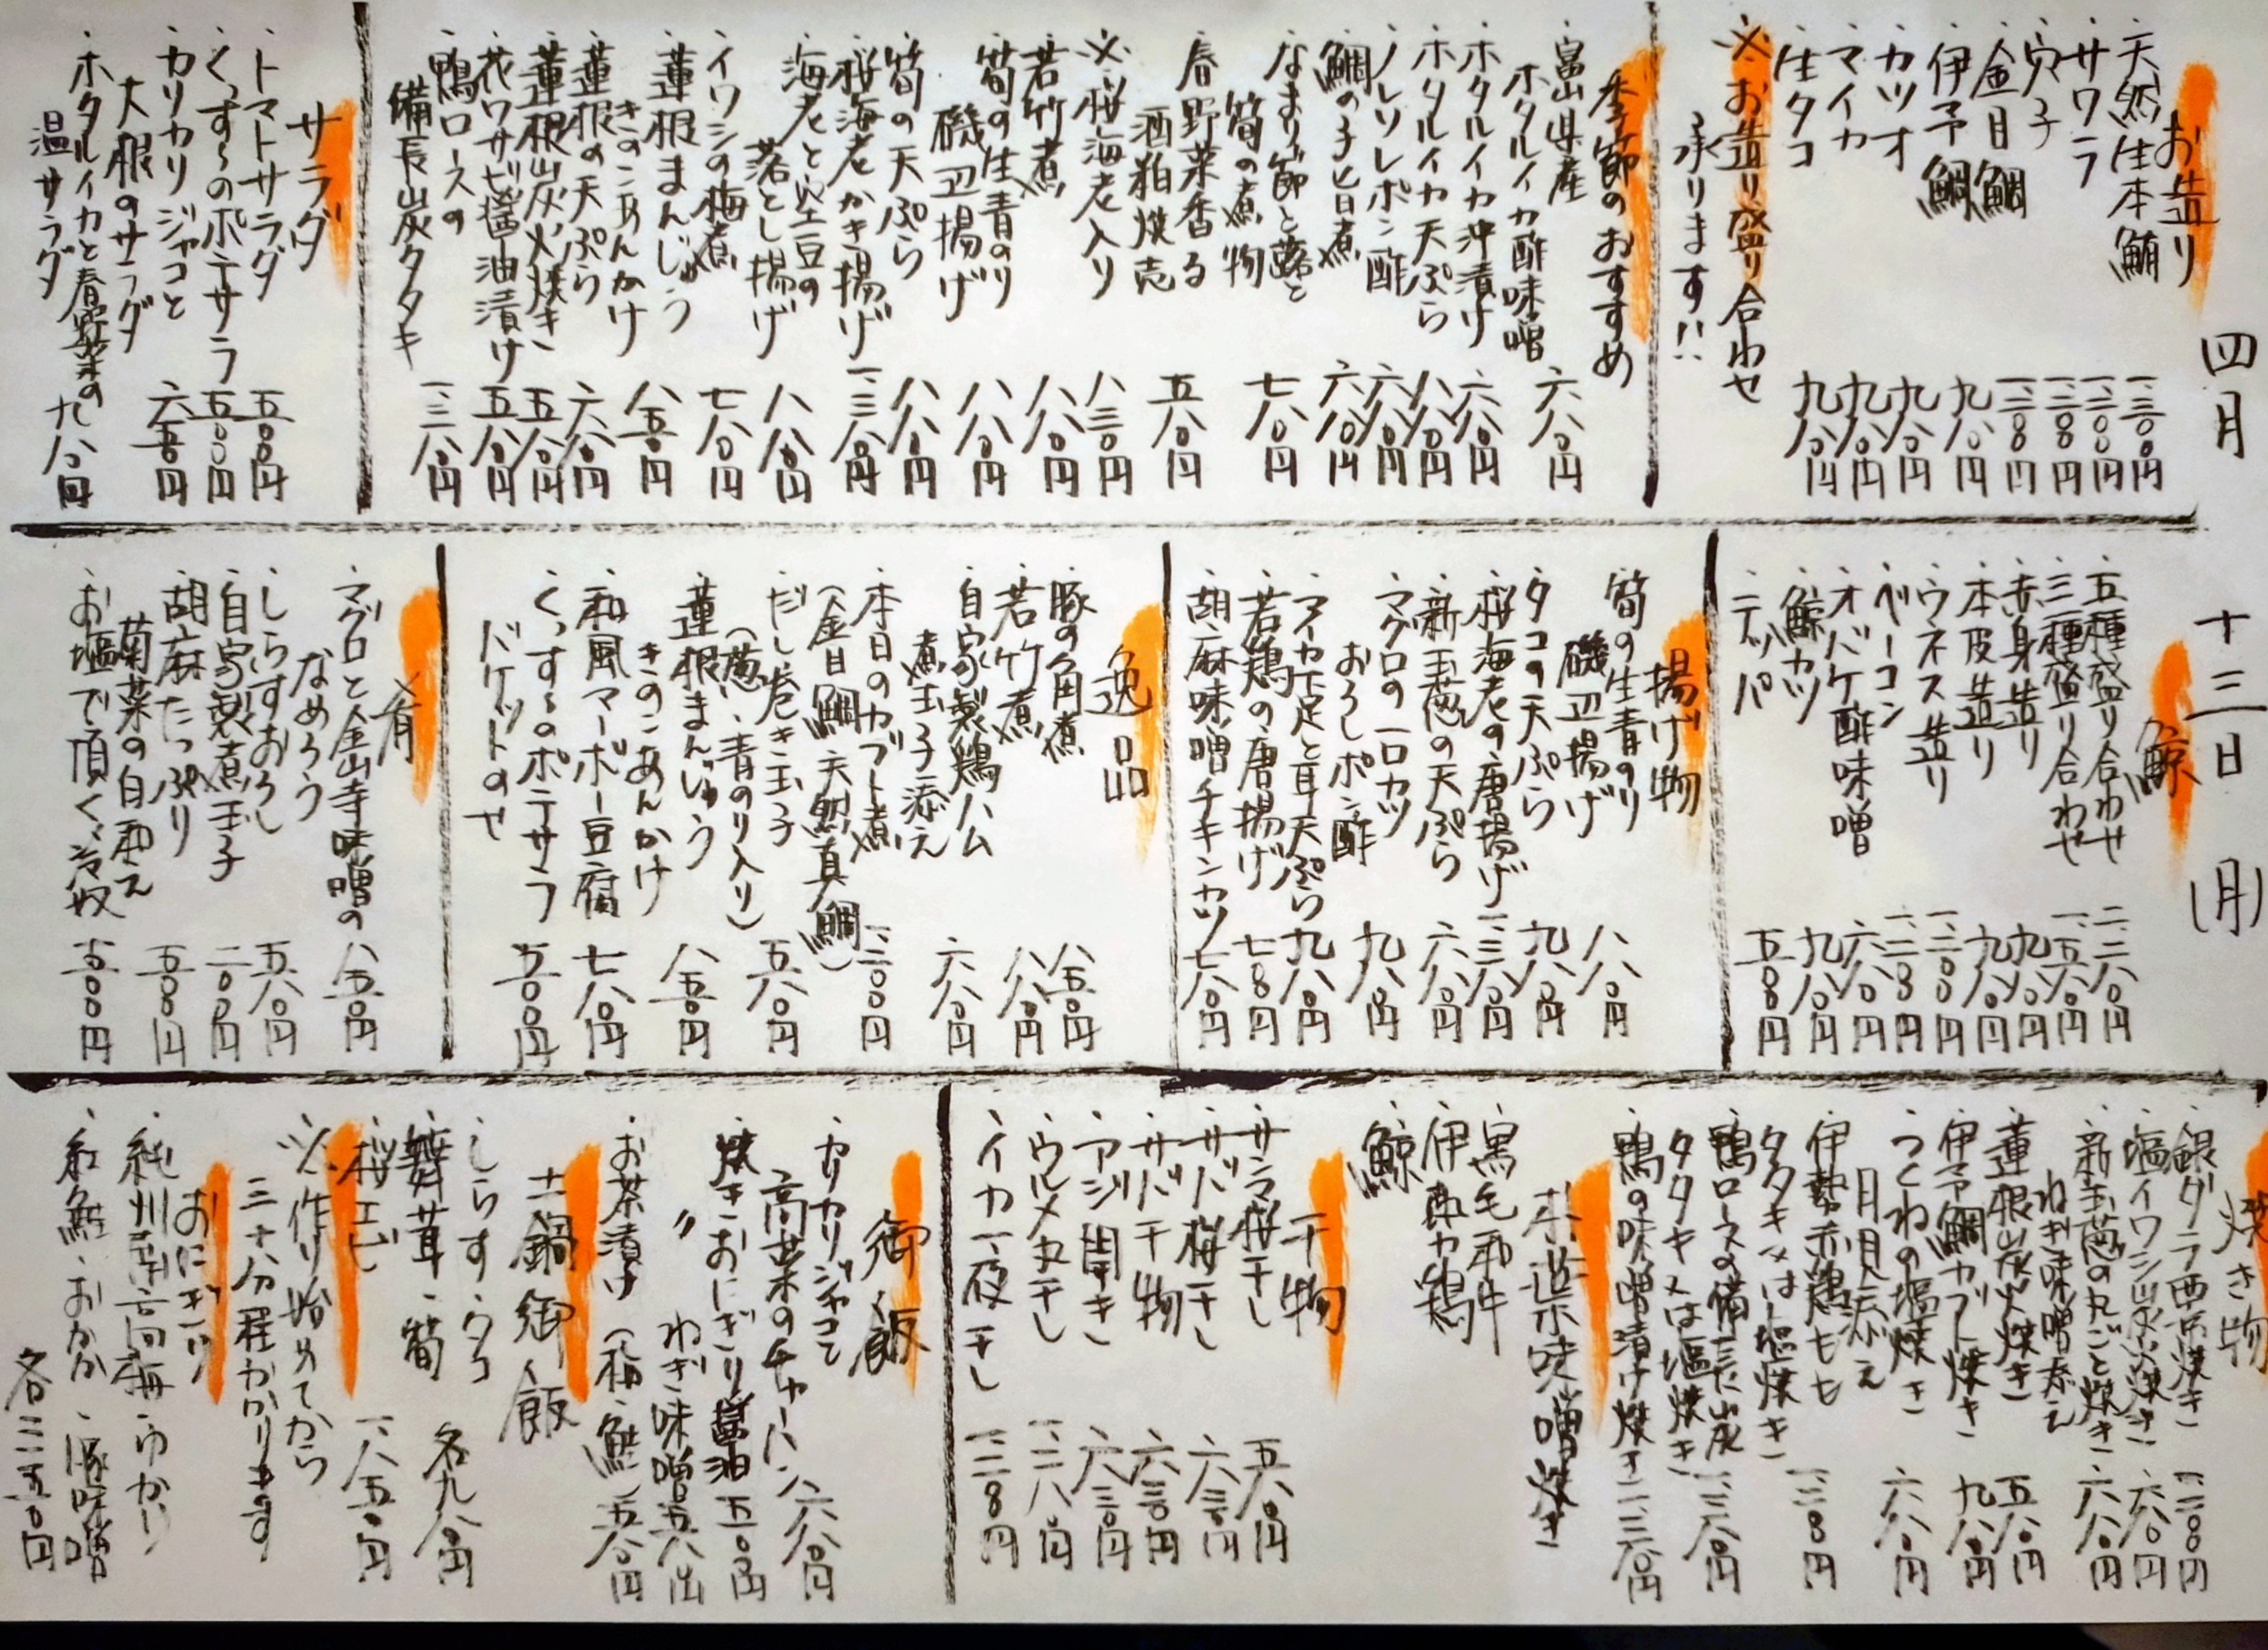 四月
十三日
(月)
お造り
・天然生本鮪 一二三〇〇円
・サワラ
・穴子
・金目鯛
・伊予鯛 九八〇円
・カツオ 九八〇円
・マイカ 九八〇円
・生タコ 九八〇円
※お造り盛り合わせ
承ります!!
季節のおすすめ
・富山県産
ホタルイカ酢味噌 六八〇円
・ホタルイカ沖漬け 六八〇円
・ホタルイカ天ぷら 八八〇円
・ノレソレポン酢 六八〇円
・鯛の子旨煮 六八〇円
・なまり節と蕗と
筍の煮物 七八〇円
・春野菜香る
酒粕焼売 五八〇円
※桜海老入り 八三〇円
・若竹煮 八八〇円
・筍の生青のり
磯辺揚げ 八八〇円
・筍の天ぷら 八八〇円
・桜海老かき揚げ 一、三八〇円
・海老と空豆の
落とし揚げ 八八〇円
・イワシの梅煮 七八〇円
・蓮根まんじゅう
きのこあんかけ 八五〇円
・蓮根の天ぷら 六八〇円
・蓮根炭火焼き 五八〇円
・花ワサビ醤油漬け 五八〇円
・鴨ロースの
備長炭タタキ 一、三八〇円
サラダ
・トマトサラダ 五〇〇円
・くっすーのポテサラ 五〇〇円
・カリカリジャコと
大根のサラダ 六五〇円
・ホタルイカと春野菜の
温サラダ 九八〇円
鯨
・五種盛り合わせ 二、二八〇円
・三種盛り合わせ 一、五八〇円
・赤身造り 九八〇円
・本皮造り 九八〇円
・ウネス造り
・ベーコン
・オバケ酢味噌 六八〇円
・鯨カツ 九八〇円
・テッパ 五〇〇円
揚げ物
・筍の生青のり
磯辺揚げ 八八〇円
・タコの天ぷら 九八〇円
・桜海老の唐揚げ 一、三八〇円
・新玉葱の天ぷら 六八〇円
・マグロの一口カツ
おろしポン酢 九八〇円
・マイカ下足と耳天ぷら 九八〇円
・若鶏の唐揚げ 七八〇円
・胡麻味噌チキンカツ 七八〇円
逸品
・豚の角煮 八五〇円
・若竹煮 八八〇円
・自家製鶏ハム
煮玉子添え 六八〇円
・本日のカブト煮
(金目鯛・天然真鯛)
・だし巻き玉子
(葱・青のり入り) 五八〇円
・蓮根まんじゅう
きのこあんかけ 八五〇円
・和風マーボー豆腐 七八〇円
・くっすーのポテサラ
バケットのせ 五〇〇円
肴
・マグロと金山寺味噌の
なめろう 八五〇円
・しらすおろし 五八〇円
・自家製煮玉子 二〇〇円
・胡麻たっぷり
菊菜の白和え 五〇〇円
・お塩で頂く冷奴 五〇〇円
焼き物
・銀ダラ西京焼き
・塩イワシ炭火焼き 六八〇円
・新玉葱の丸ごと焼き
ねぎ味噌添え 六八〇円
・蓮根炭火焼き 五八〇円
・伊予鯛カブト焼き 九八〇円
・つくねの塩焼き
月見添え 六八〇円
・伊勢赤鶏もも
タタキ又は塩焼き
・鴨ロースの備長炭
タタキ又は塩焼き 一、三八〇円
・鴨の味噌漬け焼き
朴葉味噌焼き
黒毛和牛
伊勢赤鶏
鯨
干物
・サンマ桜干し 五八〇円
・サバ桜干し 六三〇円
・サバ干物 六三〇円
・アジ開き 六三〇円
・ウルメ丸干し
・イカ一夜干し
御飯
・カリカリジャコと
高菜のチャーハン 六八〇円
・焼きおにぎり醤油 五〇〇円
〃 ねぎ味噌 五八〇円
・お茶漬け(梅・鮭) 五八〇円
土鍋御飯
・しらす・タコ
舞茸・筍 各九八〇円
・桜エビ 一、八五〇円
※作り始めてから
三十分程かかります
おにぎり
・紀州南高梅・ゆかり
・紅鮭・おかか・豚味噌
各二五〇円